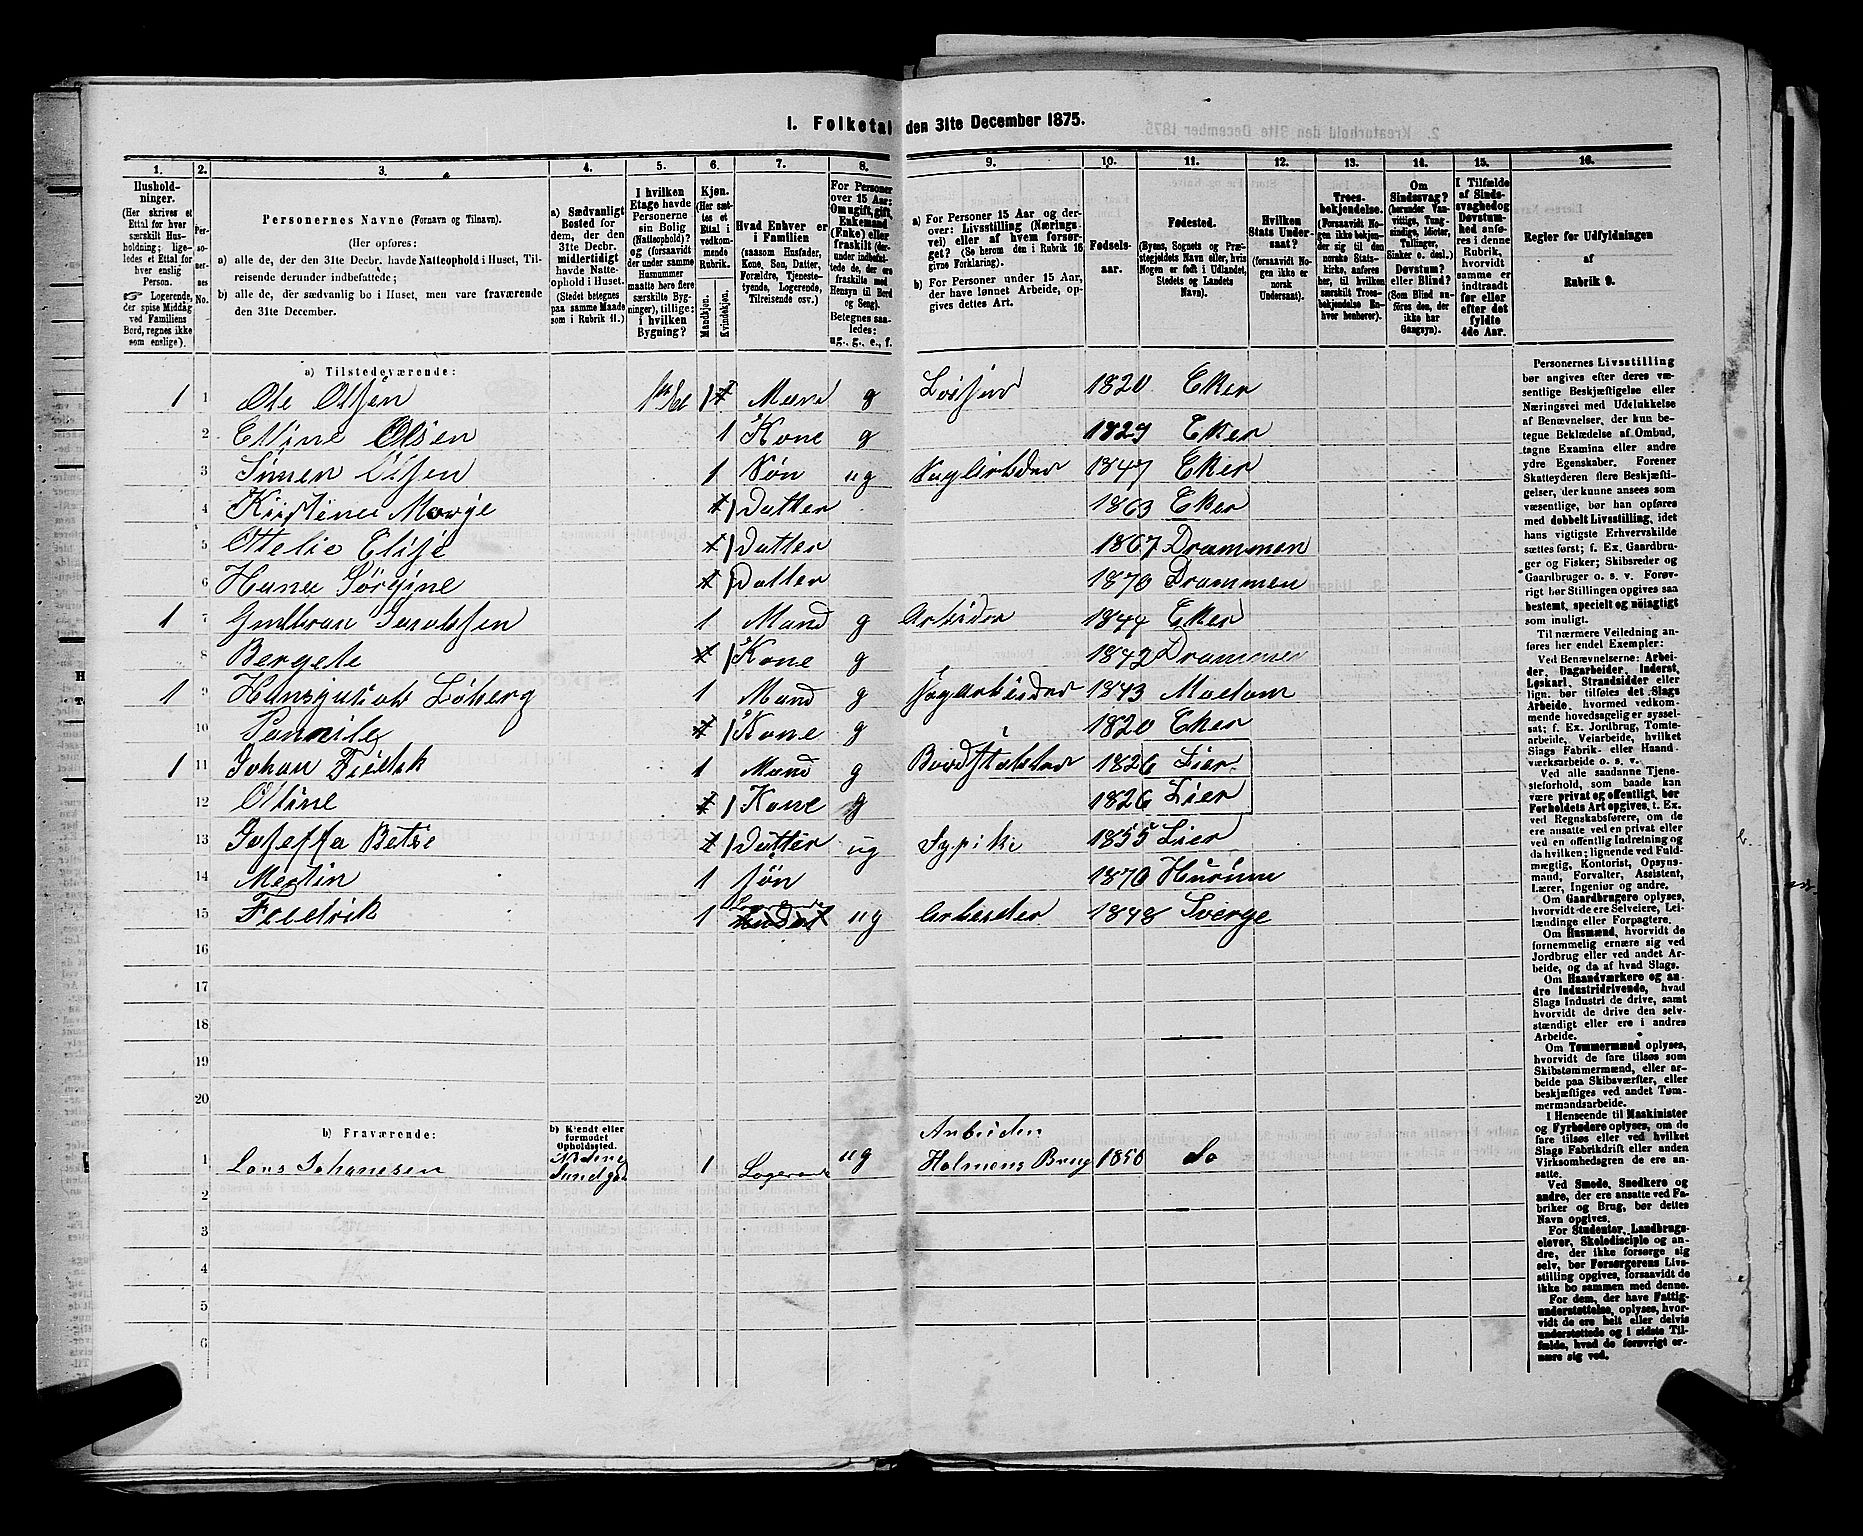 1. Folketal den 31te December 1875.
1. 2. 3. 4. 5. 6. 7. 8. 9. 10. 11. 12. 13. 14. 15. 16.
Hushold-
ninger.
(Her skrives et
Ettal for hver
særskilt Hus-
holdning; lige-
ledes et Ettal
for hver enslig
Person.
☞ Logerende,
der spise Middag
ved Familiens
Bord, regnes ikke
som enslige).
Per-
so-
ner-
nes
No.
Personernes Navne (Fornavn og Tilnavn).
(Her opføres:
a) alle de, der den 31te Decbr. havde Natteophold i Huset, Til-
reisende derunder indbefattede;
b) alle de, der sædvanlig bo i Huset, men vare fraværende
den 31te December.
a) Sædvanligt
Bosted for
dem, der den
31te Decbr.
midlertidigt
havde Natte-
ophold i Huset.
(Stedet betegnes
paa samme Maade
som i Rubrik 11.)
I hvilken
Etage havde
Personerne
sin Bolig
(Natteophold)?
og (forsaavidt
der under samme
Husnummer
maatte høre flere
særskilte Byg-
ninger), tillige:
i hvilken
Bygning?
Kjøn.
(Her sæt-
tes et
Ettal i
vedkom-
mende
Rubrik.
Mandkjøn.
Kvindekjøn.
Hvad Enhver er
i Familien
(saasom Husfader,
Kone, Søn, Datter,
Forældre, Tjeneste-
tyende, Logerende,
Tilreisende osv.)
For Personer
over 15 Aar:
Om ugift, gift,
Enkemand
(Enke) eller
fraskilt
Betegnes saa-
ledes:
ug., g., e., f.
a) For Personer 15 Aar og der-
over: Livsstilling (Nærings-
vei) eller af hvem forsør-
get? (Se herom den i Rubrik 16
givne Forklaring).
b) For Personer under 15 Aar,
der have lønnet Arbeide, op-
gives dettes Art.
Fødsels-
aar.
Fødested.
(Byens, Sognets og Præ-
stegjeldets Navn eller, hvis
Nogen er født i Udlandet,
Stedets og Landets
Navn).
Hvilken
Stats Under-
saat?
(forsaavidt No-
gen ikke er
norsk
Undersaat).
Troes-
bekjendelse.
(Forsaavidt No-
gen ikke bekjen-
der sig til den
norske Stats-
kirke, anføres
her, til hvilken
særskilt Troes-
bekjendelse En-
hver henhører).
Om
Sindssvag?
(herunder Van-
vittige, Tung-
sindige, Idioter,
Tullinger,
Sinker o. desl.)
Døvstum?
eller Blind?
(Som Blind an-
føres den, der
ikke har
Gangsyn).
I Tilfælde
af Sinds-
svaghed og
Døvstum-
hed anfø-
res i denne
Rubrik,
hvorvidt
samme er
indtraadt
før eller
efter det
fyldte
4de Aar.
Regler for Udfyldningen
af
Rubrik 9.
a) Tilstedeværende:
1 1 Ole Olsen 1 Mand g 1820 Eker
2 Olsen 1 Kone g 1829 Eker
3 Simen Olsen 1 Søn ug 1847 Eker
4 1 Datter 1863 Eker
5 Ottelie Elise 1 Datter 1867 Drammen
6 1 Datter 1870 Drammen
1 7 1 Mand g Arbeider 1844 Eker
8 Bergete 1 Kone g 1842 Drammen
1 9 Hansjakob Løberg 1 Mand g 1843 Modum
10 1 Kone g 1820 Eker
1 11 Johan 1 Mand g 1826 Lier
12 Oline 1 Kone g 1826 Lier
13 Joseffa Betsie 1 Datter ug Sypike 1855 Lier
14 Martin 1 søn 1870 Hurum
15 Fredrik 1 Logerende ug Arbeider 1848 Sverge
16
17
18
19
20
b) Fraværende:
b) Kjendt eller
formodet
Opholdssted.
1 Lars Johanesen 1 Logerende ug Arbeider
Holmens Brug 1850 do
2
3
4
5
6
Personernes Livsstilling
bør angives efter deres væ-
sentlige Beskjæftigelse eller
Næringsvei med Udelukkelse
af Benævnelser, der kun be-
tegne Beklædelse af Ombud,
tagne Examina eller andre
ydre Egenskaber. Forener
Skatteyderen flere Beskjæfti-
gelser, der kunne ansees som
væsentlige, bør han opføres
med dobbelt Livsstilling, idet
hans vigtigste Erhvervskilde
sættes først; f. Ex. Gaardbru-
ger og Fisker; Skibsreder og
Gaardbruger o. s. v. Forøv-
rigt bør Stillingen opgives saa
bestemt, specielt og nøiagtigt
som muligt.
Til nærmere Veiledning an-
føres her endel Exempler:
Ved Benævnelserne: Arbei-
der, Dagarbeider, Inderst,
Løskarl, Strandsidder eller
lign. bør tilføies det Slags
Arbeide, hvormed vedkom-
mende hovedsagelig er syssel-
sat; f. Ex. Jordbrug, Tomte-
arbeide, Veiarbeide, hvilket
Slags Fabrik- eller Haand-
værksarbeide o. s. v.
Ved alle saadanne Tjene-
steforhold, som baade kan
være privat og offentligt, bør
Forholdets Art opgives, t. Ex.
ved Regnskabsførere, om de
ere ansatte ved en privat eller
ved en offentlig Indretning og
da hvilken; lignende ved Fuld-
mægtig, Kontorist, Opsyns-
mand, Forvalter, Assistent,
Lærer, Ingeniør og andre.
Om Gaardbrugere oplyses,
hvorvidt de ere Selveiere, Lei-
lændinge eller Forpagtere.
Om Husmænd, hvorvidt de
fornemmelig ernære sig ved
Jordbrug eller ved andet Ar-
beide, og da af hvad Slags.
Om Haandværkere og an-
dre Industridrivende, hvad
Slags Industri de drive, samt
hvorvidt de drive den selv-
stændigt eller ere i andres
Arbeide.
Om Tømmermænd oplyses,
hvorvidt de fare tilsøs som
Skibstømmermænd, eller ar-
beide paa Skibsværfter, eller
beskjæftiges ved andet Tøm-
mermandsarbeide.
I Henseende til Maskinister
og Fyrbødere oplyses, om de
fare tilsøs eller ved hvilket
Slags Fabrikdrift eller anden
Virksomhedsgren de ere an-
satte.
Ved Smede, Snedkere og
andre, der ere ansatte ved Fa-
briker og Brug, bør dettes
Navn opgives.
For Studenter, Landbrugs-
elever, Skoledisciple og an-
dre, der ikke forsørge sig
selv, bør Forsørgerens Livs-
stilling opgives, forsaavidt de
ikke bo sammen med denne.
For dem, der have Fattig-
understøttelse, oplyses, hvor-
vidt de ere helt eller delvis
understøttede og i sidste Til-
fælde, hvad de forøvrigt er-
nære sig ved.